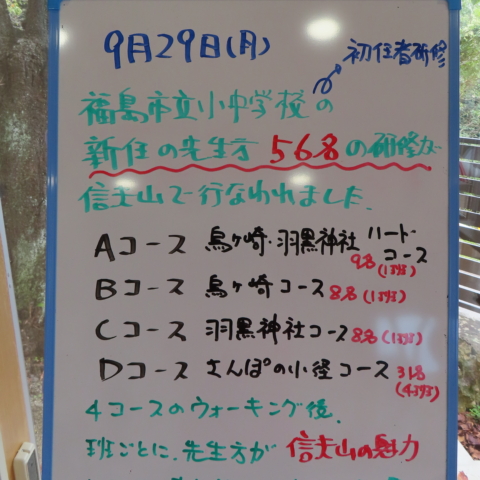 9月29日(月)
初任者研修
福島市立小中学校の
新任の先生方 56名の研修が
信夫山で行なわれました.
Aコース 烏ヶ崎・羽黒神社 ハート・コース 9名(1班)
Bコース 烏ヶ崎コース 8名(1班)
Cコース 羽黒神社コース 8名(1班)
Dコース さんぽの小径コース 31名(4班)
4コースのウォーキング後.
班ごとに.先生方が 信夫山の魅力